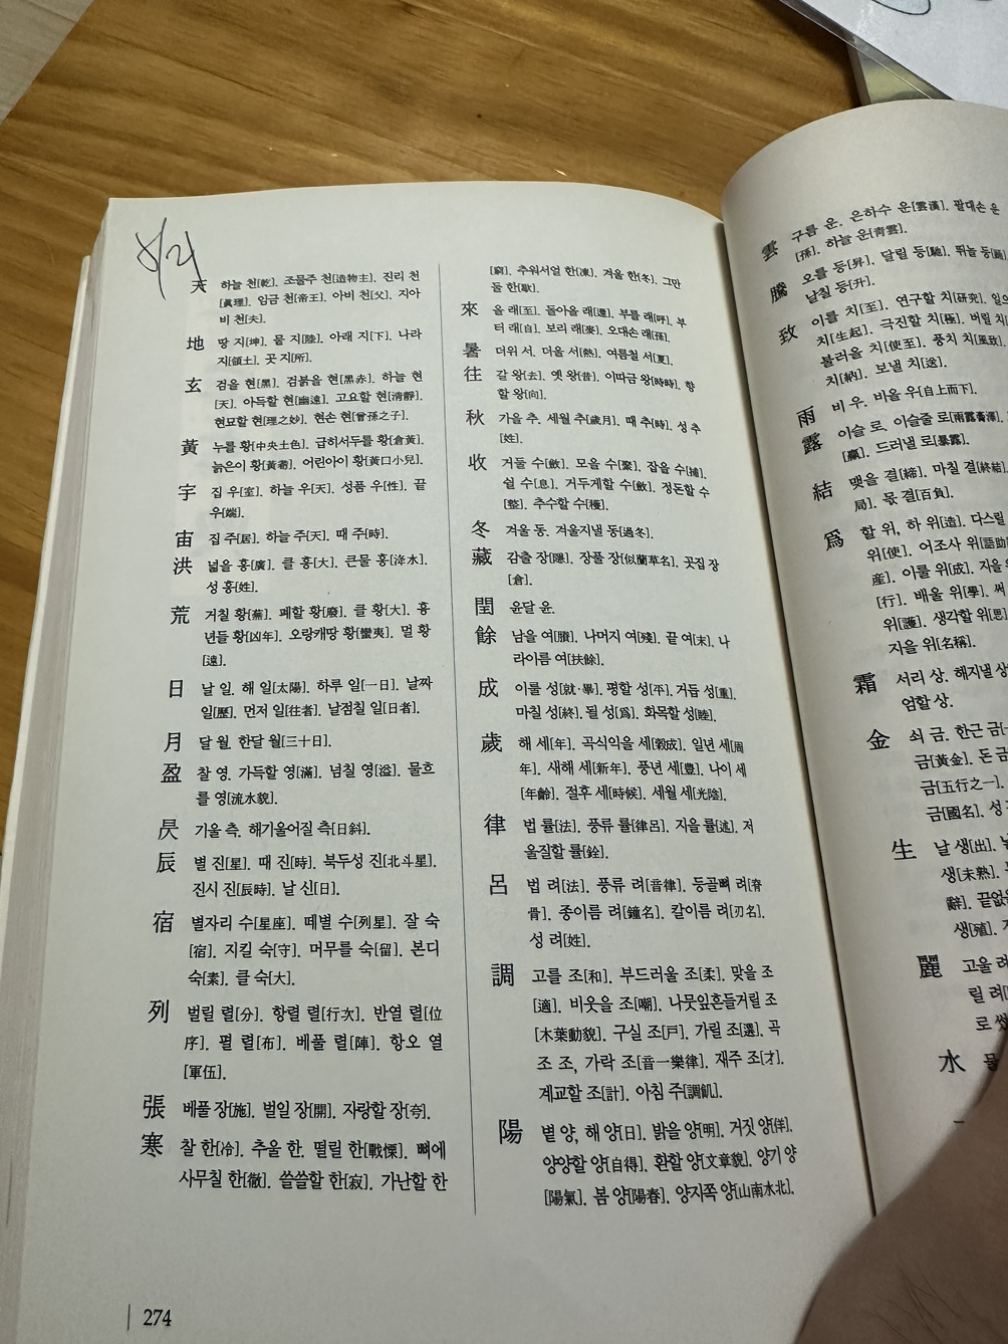 天 하늘 천[乾]. 조물주 천[造物主]. 진리 천
[眞理]. 임금 천[帝王]. 아비 천[父]. 지아
비 천[夫].
地 땅 지[坤]. 뭍 지[陸]. 아래 지[下]. 나라
지[領土]. 곳 지[所].
玄 검을 현[黑]. 검붉을 현[黑赤]. 하늘 현
[天]. 아득할 현[幽遠]. 고요할 현[淸靜].
현묘할 현[理之妙]. 현손 현[曾孫之子].
黃 누를 황[中央土色]. 급히서두를 황[倉黃].
늙은이 황[黃耈]. 어린아이 황[黃口小兒].
宇 집 우[室]. 하늘 우[天]. 성품 우[性]. 끝
우[端].
宙 집 주[居]. 하늘 주[天]. 때 주[時].
洪 넓을 홍[廣]. 클 홍[大]. 큰물 홍[洚水].
성 홍[姓].
荒 거칠 황[蕪]. 폐할 황[廢]. 클 황[大]. 흉
년들 황[凶年]. 오랑캐땅 황[蠻夷]. 멀 황
[遠].
日 날 일. 해 일[太陽]. 하루 일[一日]. 날짜
일[曆]. 먼저 일[往者]. 날점칠 일[日者].
月 달 월. 한달 월[三十日].
盈 찰 영. 가득할 영[滿]. 넘칠 영[溢]. 물흐
를 영[流水貌].
昃 기울 측. 해기울어질 측[日斜].
辰 별 진[星]. 때 진[時]. 북두성 진[北斗星].
진시 진[辰時]. 날 신[日].
宿 별자리 수[星座]. 떼별 수[列星]. 잘 숙
[宿]. 지킬 숙[守]. 머무를 숙[留]. 본디
숙[素]. 클 숙[大].
列 벌릴 렬[分]. 항렬 렬[行次]. 반열 렬[位
序]. 펼 렬[布]. 베풀 렬[陣]. 항오 열
[軍伍].
張 베풀 장[施]. 벌일 장[開]. 자랑할 장[夸].
寒 찰 한[冷]. 추울 한. 떨릴 한[戰慄]. 뼈에
사무칠 한[徹]. 쓸쓸할 한[寂]. 가난할 한
[窮]. 추워서얼 한[凍]. 겨울 한[冬]. 그만
둘 한[歇].
來 올 래[至]. 돌아올 래[還]. 부를 래[呼]. 부
터 래[自]. 보리 래[麥]. 오대손 래[孫].
暑 더위 서. 더울 서[熱]. 여름철 서[夏].
往 갈 왕[去]. 옛 왕[昔]. 이따금 왕[時時]. 향
할 왕[向].
秋 가을 추. 세월 추[歲月]. 때 추[時]. 성 추
[姓].
收 거둘 수[斂]. 모을 수[聚]. 잡을 수[捕].
쉴 수[息]. 거두게할 수[斂]. 정돈할 수
[整]. 추수할 수[穫].
冬 겨울 동. 겨울지낼 동[過冬].
藏 감출 장[隱]. 장풀 장[似蘭草名]. 곳집 장
[倉].
閏 윤달 윤.
餘 남을 여[賸]. 나머지 여[殘]. 끝 여[末]. 나
라이름 여[扶餘].
成 이룰 성[就·畢]. 평할 성[平]. 거듭 성[重].
마칠 성[終]. 될 성[爲]. 화목할 성[睦].
歲 해 세[年]. 곡식익을 세[穀成]. 일년 세[周
年]. 새해 세[新年]. 풍년 세[豊]. 나이 세
[年齡]. 절후 세[時候]. 세월 세[光陰].
律 법 률[法]. 풍류 률[律呂]. 지을 률[述]. 저
울질할 률[銓].
呂 법 려[法]. 풍류 려[音律]. 등골뼈 려[脊
骨]. 종이름 려[鐘名]. 칼이름 려[刃名].
성 려[姓].
調 고를 조[和]. 부드러울 조[柔]. 맞을 조
[適]. 비웃을 조[嘲]. 나뭇잎흔들거릴 조
[木葉動貌]. 구실 조[戶]. 가릴 조[選]. 곡
조 조, 가락 조[音一樂律]. 재주 조[才].
계교할 조[計]. 아침 주[調飢].
陽 볕 양, 해 양[日]. 밝을 양[明]. 거짓 양[佯].
양양할 양[自得]. 환할 양[文章貌]. 양기 양
[陽氣]. 봄 양[陽春]. 양지쪽 양[山南水北].
274
雲 구름 운. 은하수 운[雲漢]. 팔대손 운
[孫]. 하늘 운[靑雲].
騰 오를 등[昇]. 달릴 등[馳]. 뛰놀 등
날칠 등[升].
致 이를 치[至]. 연구할 치[硏究].
치[生起]. 극진할 치[極]. 버릴
불러올 치[使至]. 풍치 치[風致].
치[納]. 보낼 치[送].
雨 비 우. 비올 우[自上而下].
露 이슬 로. 이슬줄 로[雨露膏澤].
[羸]. 드러낼 로[暴露].
結 맺을 결[締]. 마칠 결[終結].
局]. 몫 결[百負].
爲 할 위, 하 위[造]. 다스릴
위[使]. 어조사 위[語助
産]. 이룰 위[成]. 지을
[行]. 배울 위[學]. 써
위[護]. 생각할 위[思]
지을 위[名稱].
霜 서리 상. 해지낼 상
엄할 상.
金 쇠 금. 한근 금
금[黃金]. 돈 금
금[五行之一].
금[國名]. 성
生 날 생[出].
생[未熟].
辭]. 끝없을
생[殖].
麗 고울 려
릴 려
로
水 물